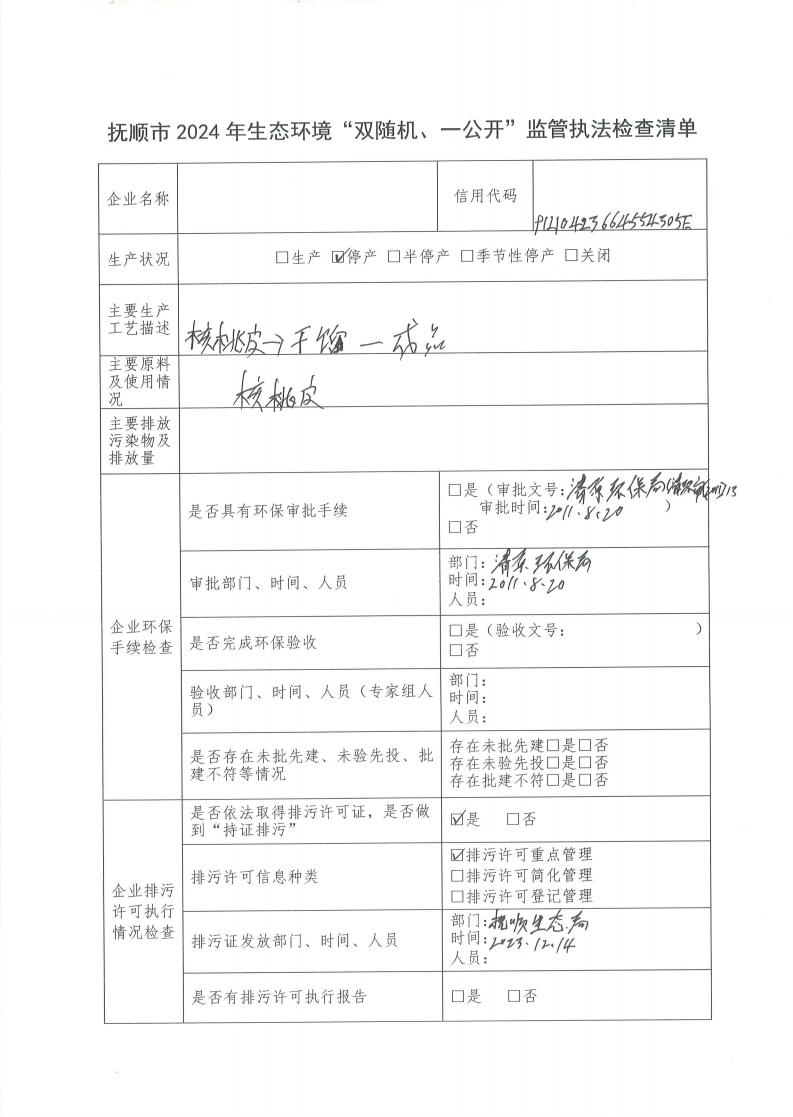 抚顺市 2024 年生态环境“双随机、一公开”监管执法检查清单
企业名称
信用代码
91210423664554305E
生产状况
□生产 ☑停产 □半停产 □季节性停产 □关闭
主要生产
工艺描述
核桃皮→干馏—成品
主要原料
及使用情
况
核桃皮
主要排放
污染物及
排放量
企业环保
手续检查
是否具有环保审批手续
□是（审批文号:清原环保局
审批时间:2011.8.20 ）
□否
审批部门、时间、人员
部门:清原环保局
时间:2011.8.20
人员:
是否完成环保验收
□是（验收文号: ）
□否
验收部门、时间、人员（专家组人
员）
部门:
时间:
人员:
是否存在未批先建、未验先投、批
建不符等情况
存在未批先建□是□否
存在未验先投□是□否
存在批建不符□是□否
企业排污
许可执行
情况检查
是否依法取得排污许可证，是否做
到“持证排污”
☑是 □否
排污许可信息种类
☑排污许可重点管理
□排污许可简化管理
□排污许可登记管理
排污证发放部门、时间、人员
部门:抚顺生态局
时间:2023.12.14
人员:
是否有排污许可执行报告
□是 □否